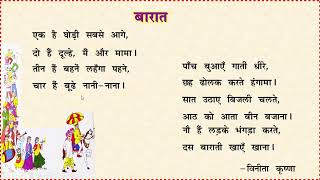 बारात
एक है घोड़ी सबसे आगे,
दो हैं दूल्हे, मैं और मामा।
तीन हैं बहने लहँगा पहने,
चार हैं बूढे नानी-नाना।
पाँच बुआएँ गाती धीरे,
छह ढोलक करते हंगामा।
सात उठाए बिजली चलते,
आठ को आता बीन बजाना।
नौ हैं लड़के भंगड़ा करते,
दस बाराती खाएँ खाना।
-विनीता कृष्णा